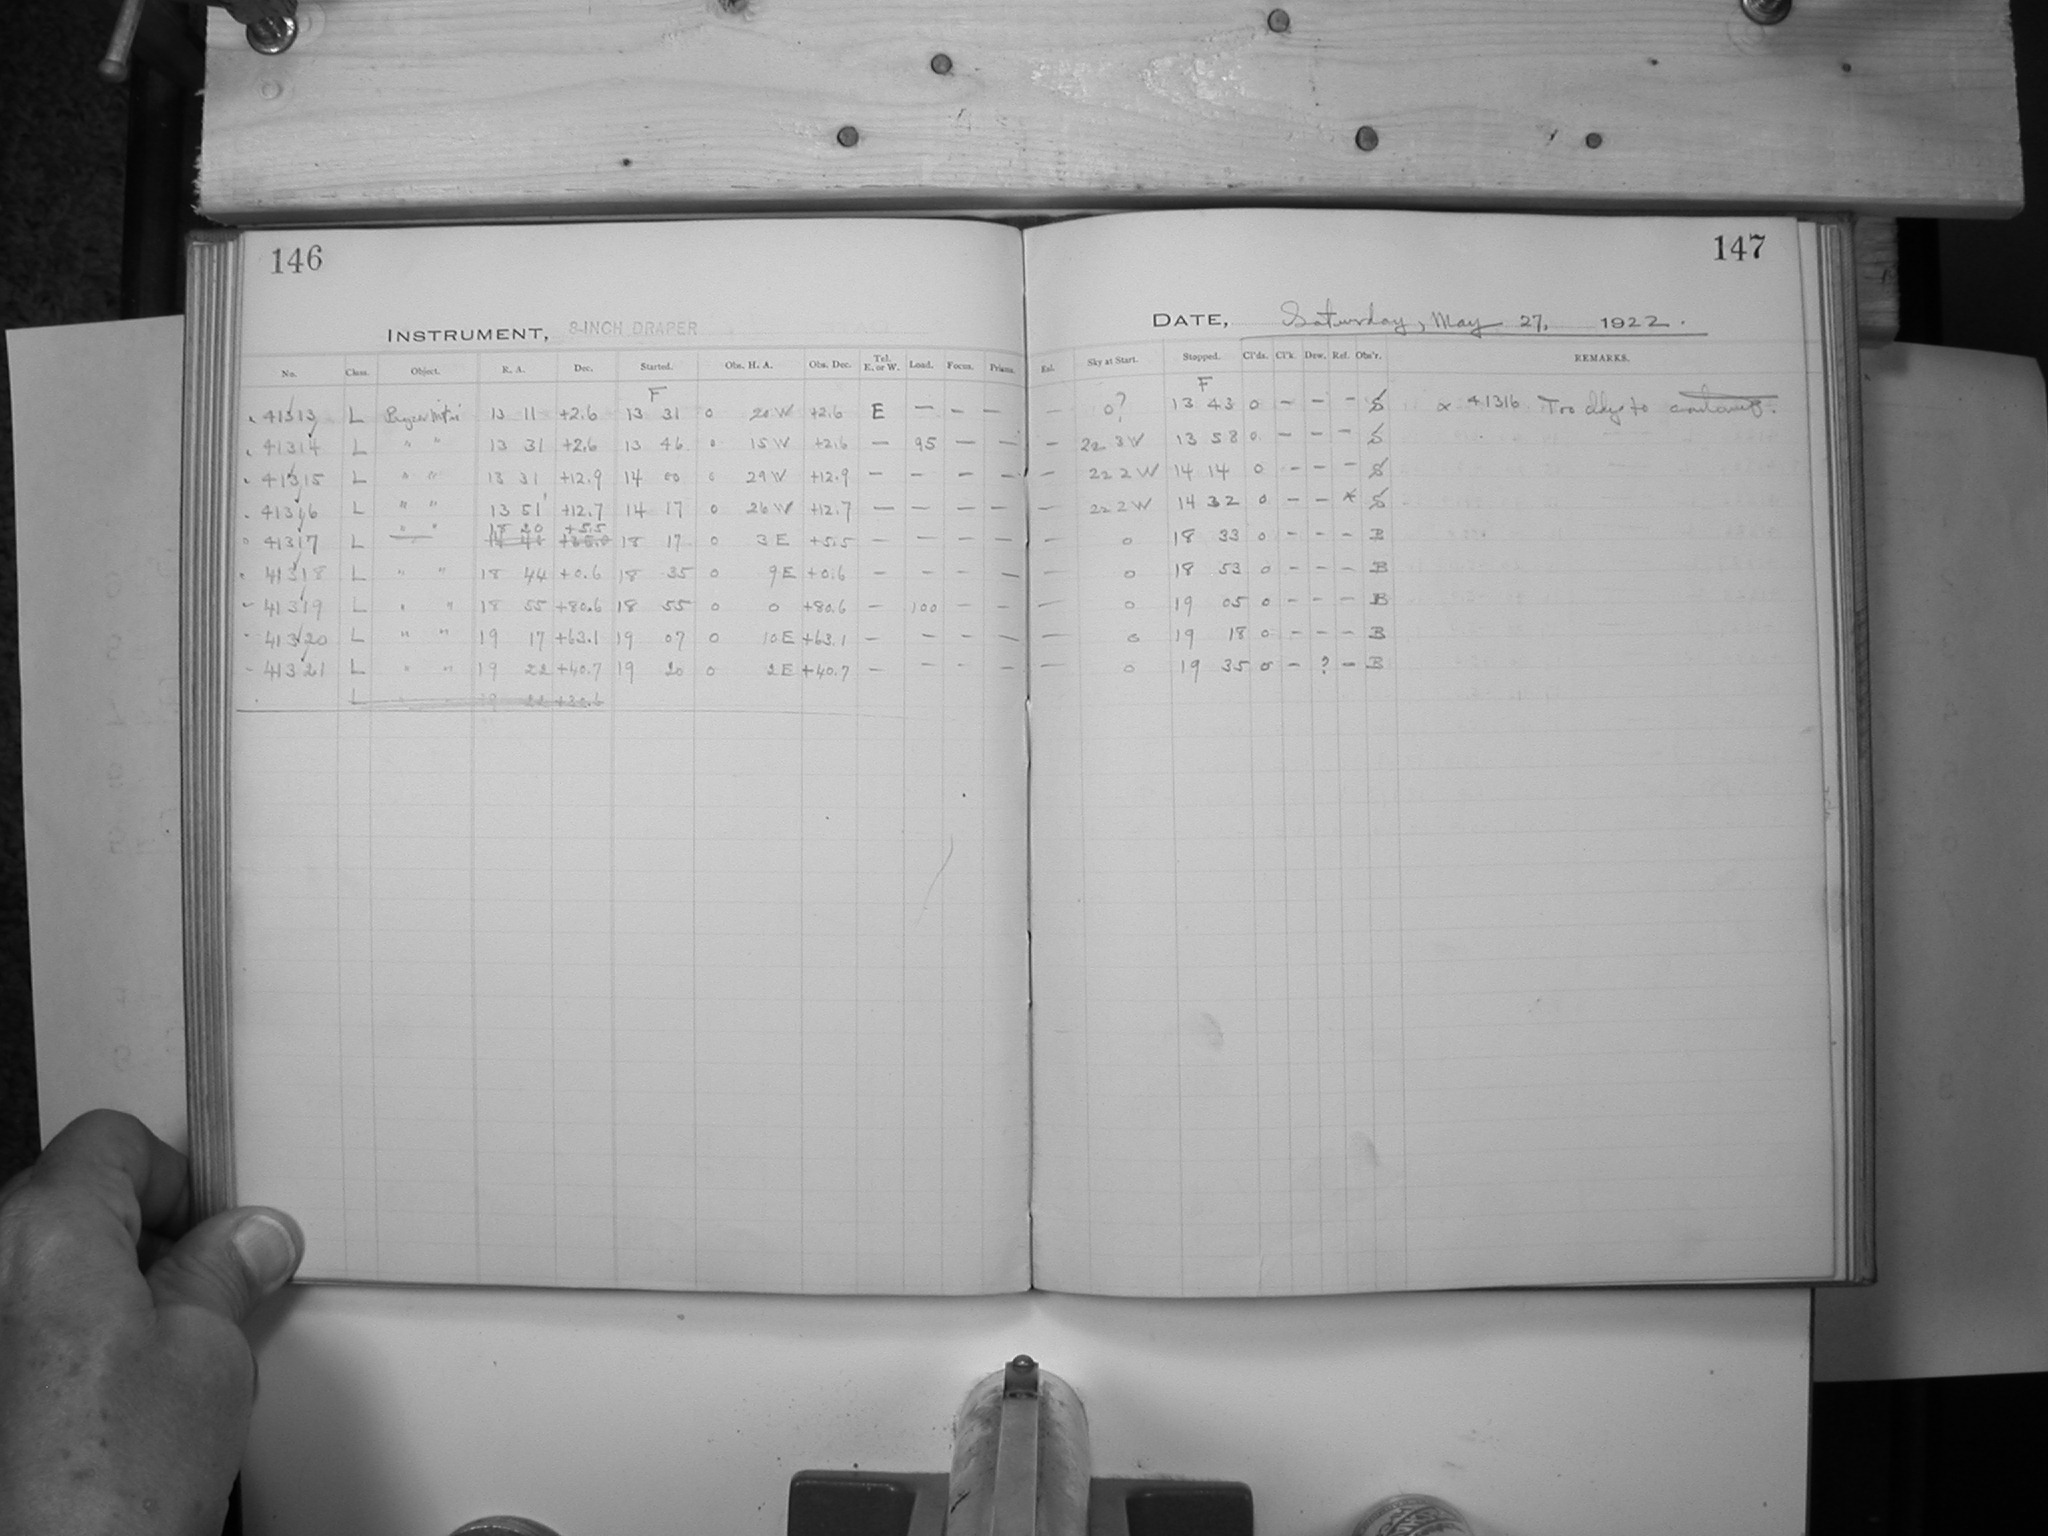 146
147
INSTRUMENT, 8-INCH DRAPER
DATE, Saturday, May 27, 1922.
No. Class. Object. R. A. Dec. Started. Obs. H. A. Obs. Dec. Tel. E. or W. Load. Focus. Prisms. Exl. Sky at Start. Stopped. Cl'ds. Cl'k. Dew. Ref. Obs'r. REMARKS.
F F
41313 L 13 11 +2.6 13 31 0 20 W +2.6 E — — — — 0? 13 43 0 — — — S x 41316 Too
41314 L " " 13 31 +2.6 13 46 0 15 W +2.6 — 95 — — — 22 3 W 13 58 0 — — — S
41315 L " " 13 31 +12.9 14 00 0 29 W +12.9 — — — — — 22 2 W 14 14 0 — — — S
41316 L " " 13 51 +12.7 14 17 0 26 W +12.7 — — — — — 22 2 W 14 32 0 — — * S
18 20 +5.5
41317 L " " 18 17 0 3 E +5.5 — — — — — 0 18 33 0 — — — B
41318 L " " 18 44 +0.6 18 35 0 9 E +0.6 — — — — — 0 18 53 0 — — — B
41319 L " " 18 55 +80.6 18 55 0 0 +80.6 — 100 — — — 0 19 05 0 — — — B
41320 L " " 19 17 +63.1 19 07 0 10 E +63.1 — — — — — 0 19 18 0 — — — B
41321 L " " 19 22 +40.7 19 20 0 2 E +40.7 — — — — — 0 19 35 0 — ? — B
L " " 19 22